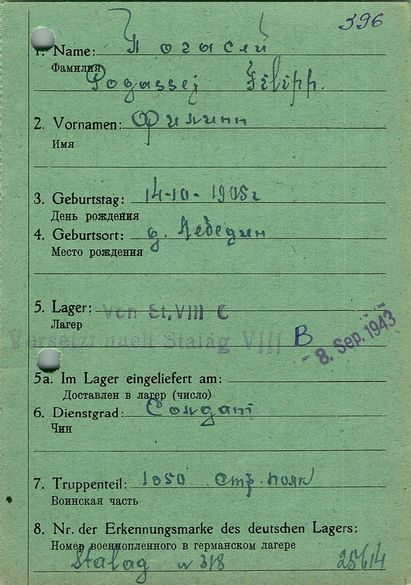 396
1. Name: Погасей
Фамилия
Pogassej Filipp.
2. Vornamen: Филипп
Имя
3. Geburtstag: 14-10-1905г
День рождения
4. Geburtsort: д. Лебедин
Место рождения
5. Lager: Von St. VIII C
Лагер
Versetzt nach Stalag VIII B - 8. Sep. 1943
5a. Im Lager eingeliefert am:
Доставлен в лагер (число)
6. Dienstgrad: Солдат
Чин
7. Truppenteil: 1050 стр. полк
Воинская часть
8. Nr. der Erkennungsmarke des deutschen Lagers:
Номер военнопленного в германском лагере
Stalag № 318 25614